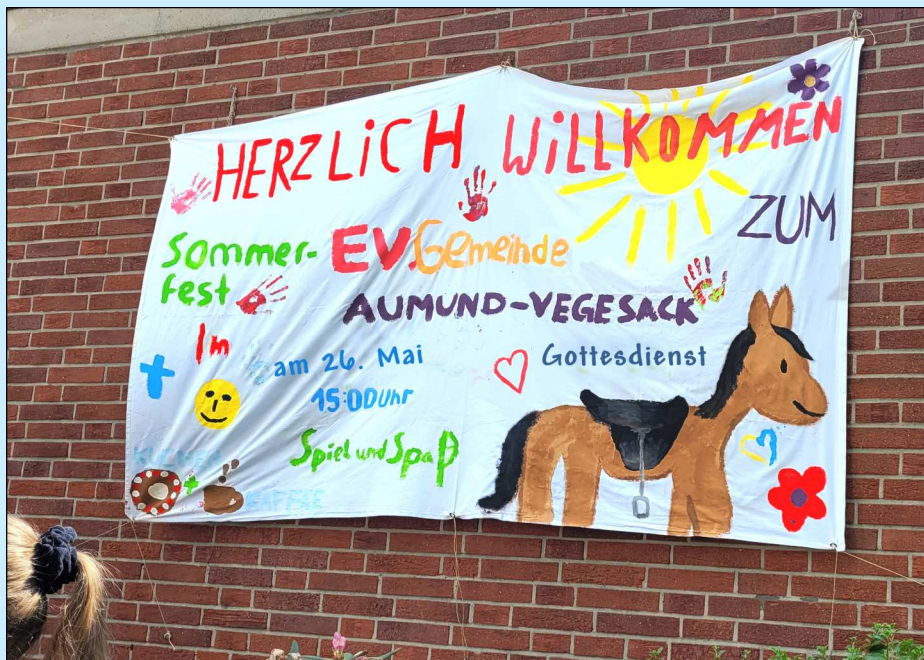 HERZLiCH WiLLKOMMEN
ZUM
Sommer-
fest
EV. Gemeinde
AUMUND-VEGESACK
Im
am 26. Mai
15:00 Uhr
Gottesdienst
Spiel und Spaß
KUCHEN
+
KAFFEE